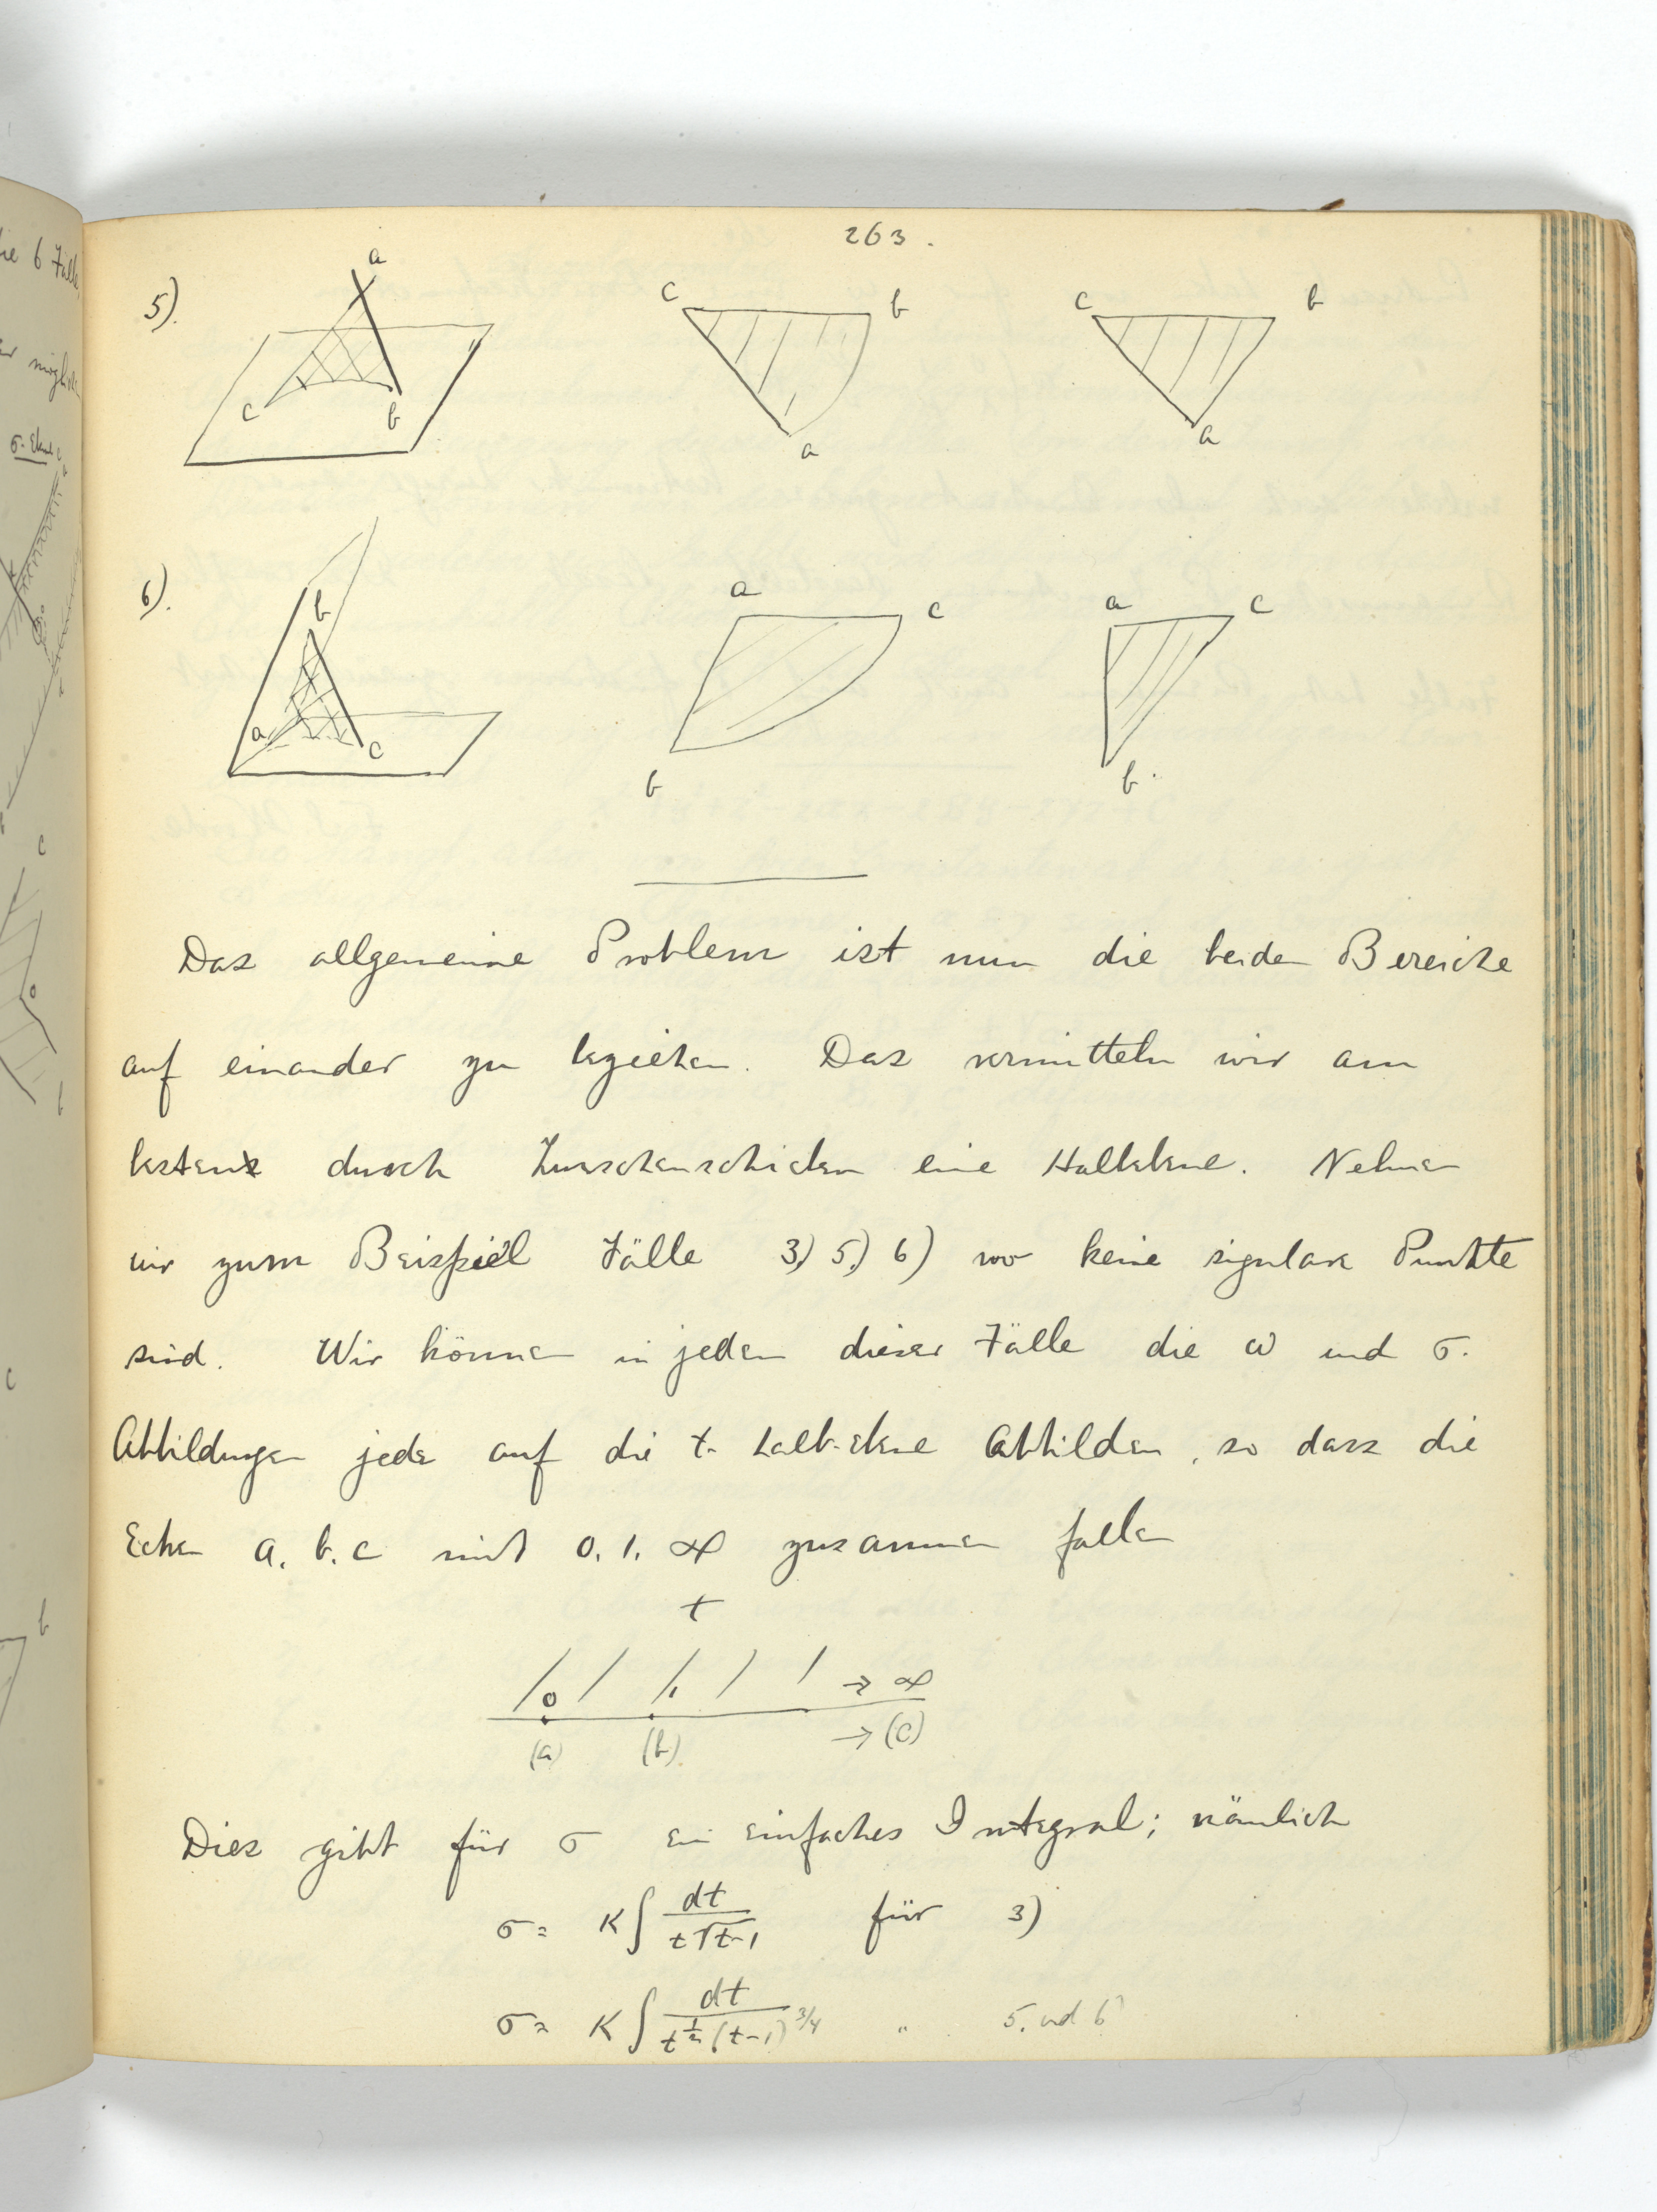 263.
5).
a
c
b
c
b
a
c
b
a
6).
b
a
c
a
c
b
a
c
b.
Das allgemeine Problem ist nun die beiden Bereiche
auf einander zu beziehen. Das vermitteln wir am
bestens durch Zwischenschieben eine Halbebene. Nehmen
wir zum Beispiel Fälle 3) 5) 6) wo keine signlare Punkte
sind. Wir können in jedem dieser Fälle die ω und σ.
Abbildungen jede auf die t- halb-ebene Abbilden, so dass die
Ecken a. b. c mit 0. 1. ∞ zusammen fallen
t
0 1 → ∞
(a) (b) → (c)
Dies gibt für σ ein einfaches Integral; nämlich
σ = K∫ dt / t√t-1 für 3)
σ = K∫ dt / t^½ (t-1)^3/4 " 5. und 6
die 6 Fälle,
σ-Ebene
c
c
b
b